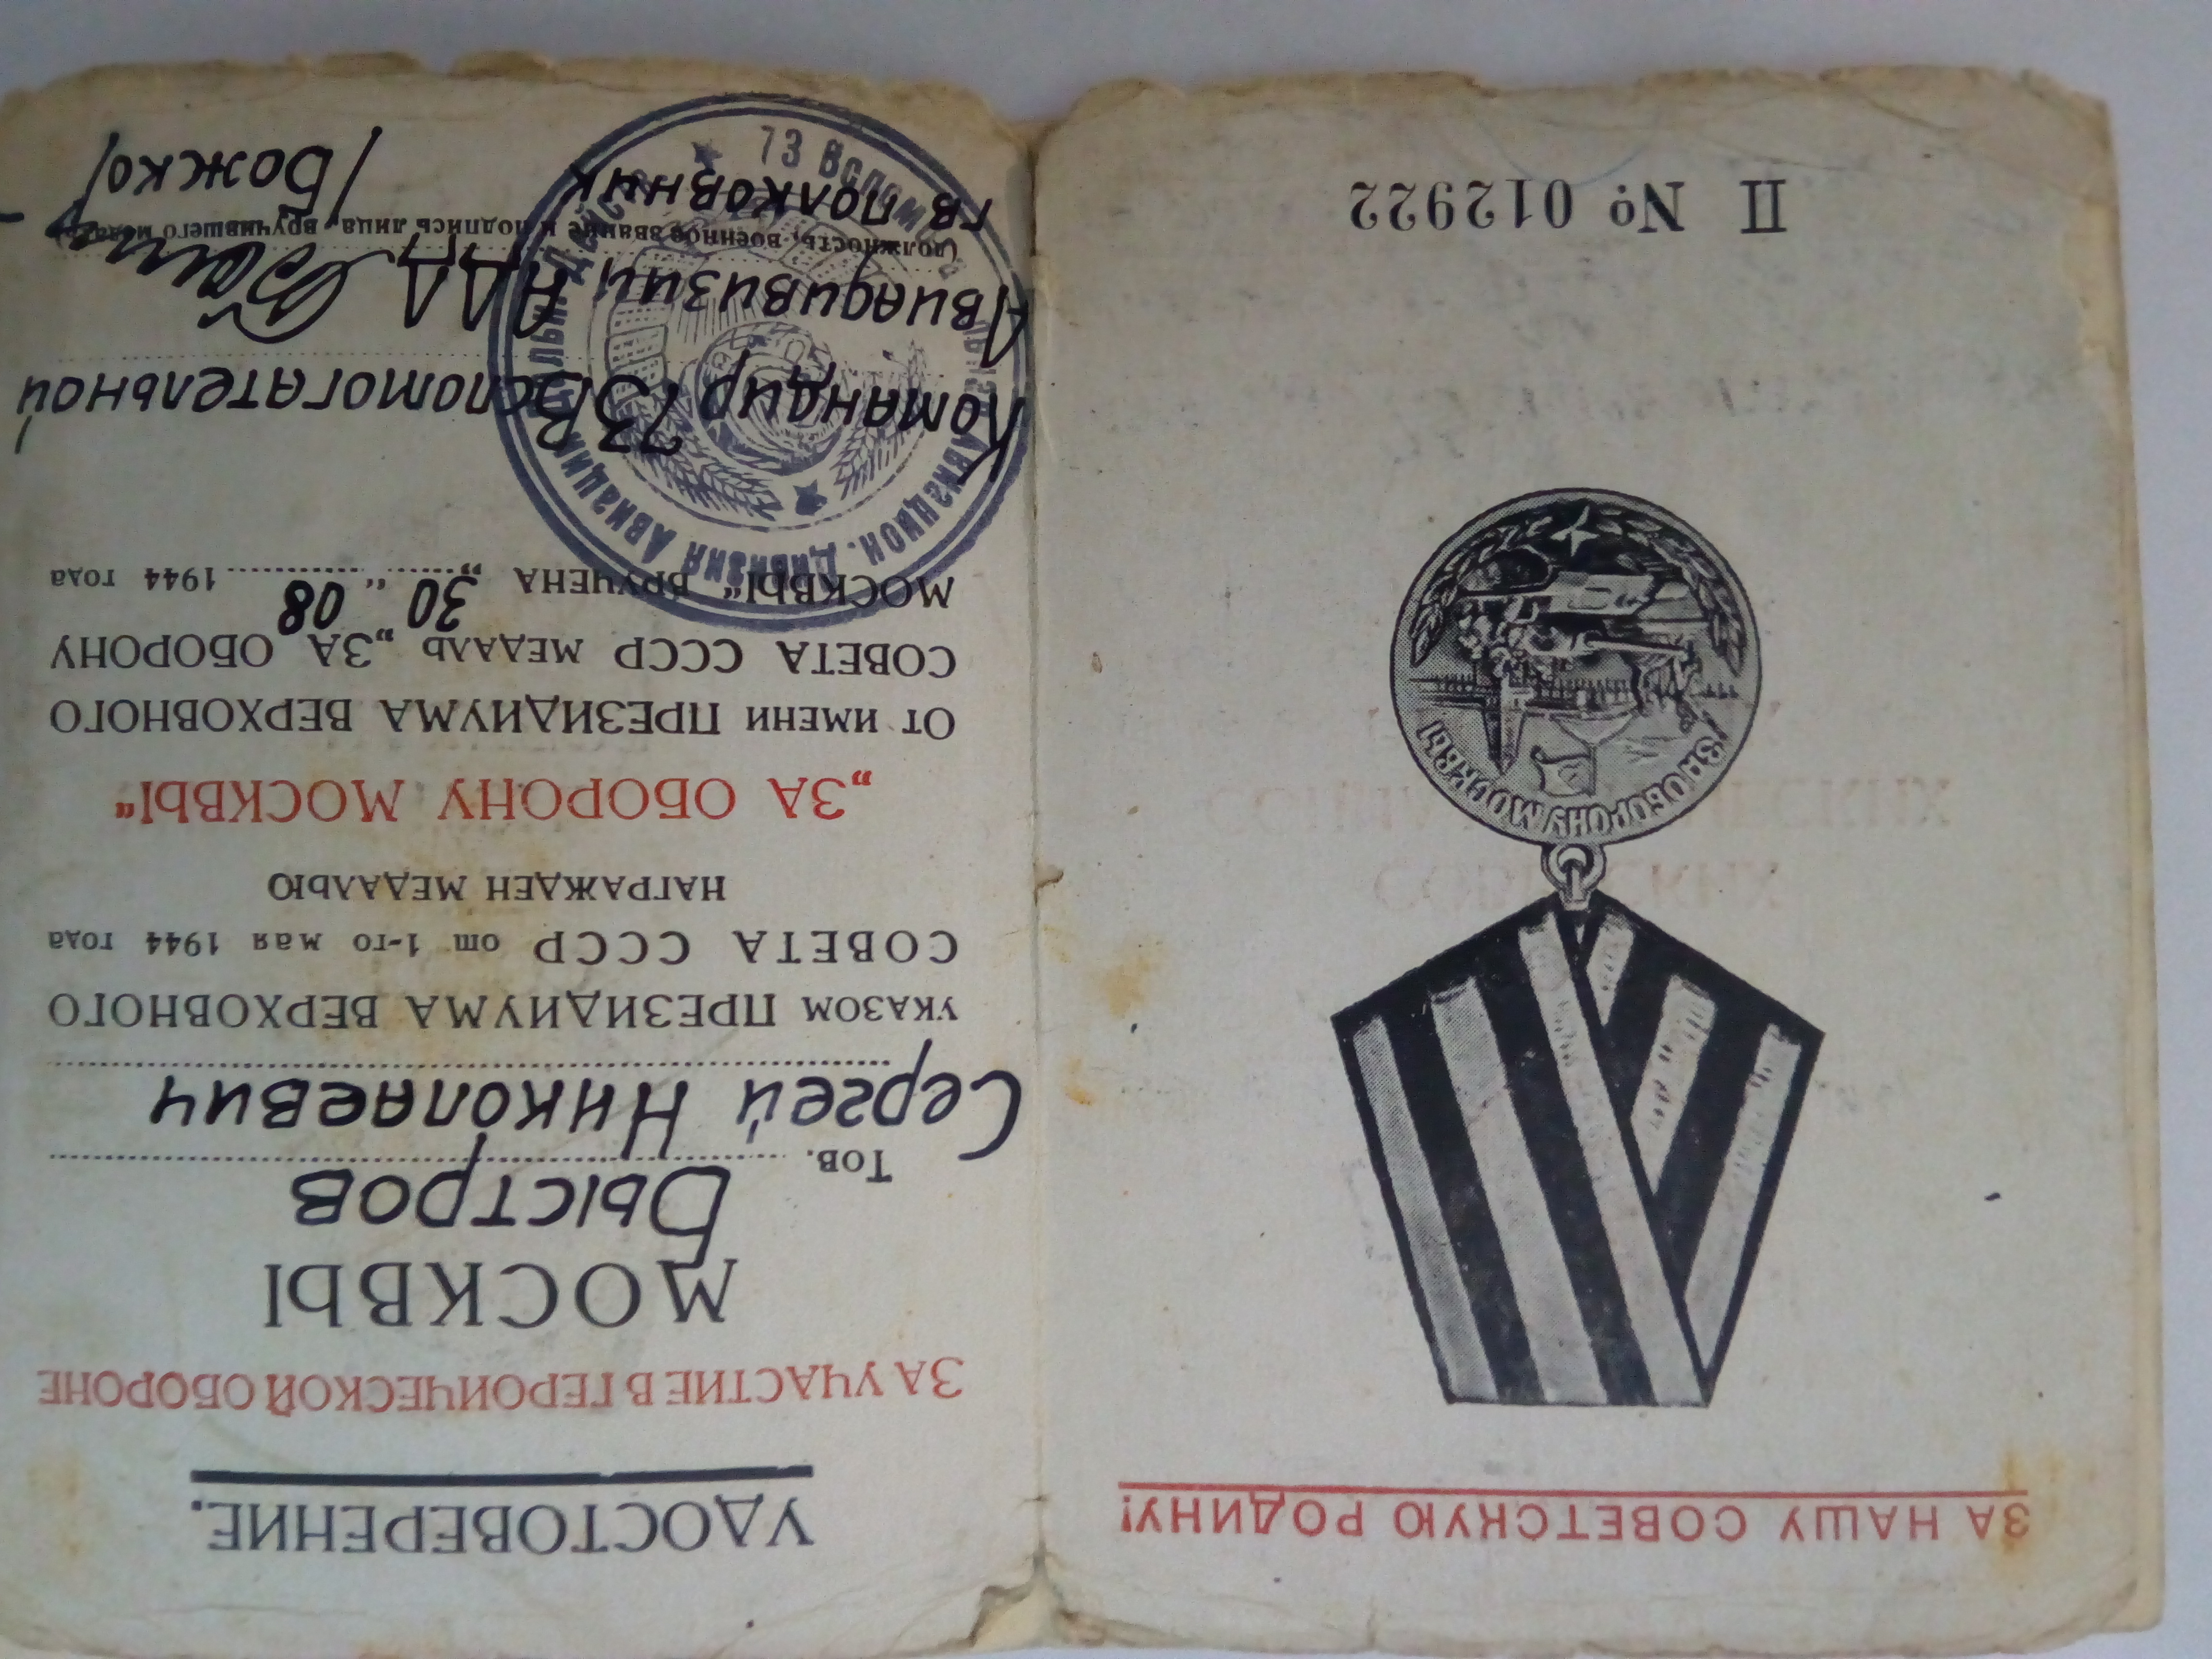 ЗА НАШУ СОВЕТСКУЮ РОДИНУ!
ЗА ОБОРОНУ МОСКВЫ
II № 012922
УДОСТОВЕРЕНИЕ.
ЗА УЧАСТИЕ В ГЕРОИЧЕСКОЙ ОБОРОНЕ
МОСКВЫ
Быстров
Тов.
Сергей Николаевич
УКАЗОМ ПРЕЗИДИУМА ВЕРХОВНОГО
СОВЕТА СССР от 1-го мая 1944 года
НАГРАЖДЕН МЕДАЛЬЮ
„ЗА ОБОРОНУ МОСКВЫ“
ОТ ИМЕНИ ПРЕЗИДИУМА ВЕРХОВНОГО
СОВЕТА СССР МЕДАЛЬ „ЗА ОБОРОНУ
МОСКВЫ“ ВРУЧЕНА „30“ 08 1944 года
Командир 73 Вспомогательной
Авиадивизии АДД
(должность, военное звание и подпись лица, вручившего медаль)
гв полковник /Божко/
73 Вспомог Авиацион. Дивизия Авиации